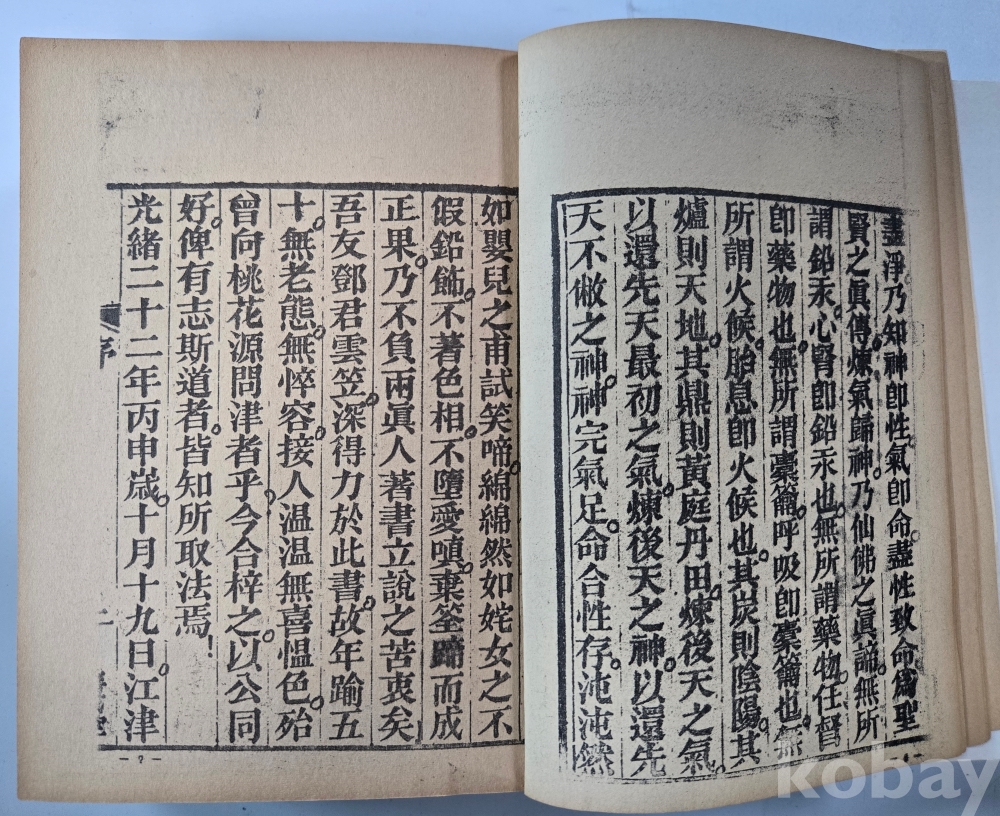 盡淨。乃知神卽性。氣卽命。盡性致命。爲聖
賢之眞傳。煉氣歸神。乃仙佛之眞諦。無所
謂鉛汞。心腎卽鉛汞也。無所謂藥物。任督
卽藥物也。無所謂橐籥。呼吸卽橐籥也。無
所謂火候。胎息卽火候也。其炭則陰陽。其
爐則天地。其鼎則黃庭丹田。煉後天之氣。
以還先天最初之氣。煉後天之神。以還先
天不敝之神。神完氣足。命合性存。沌沌然
如嬰兒之甫試笑啼。綿綿然如姹女之不
假鉛飾。不著色相。不墮愛嗔。棄筌蹄而成
正果。乃不負兩眞人著書立說之苦衷矣
吾友鄧君雲笠。深得力於此書。故年踰五
十。無老態。無悴容。接人温温無喜愠色。殆
曾向桃花源問津者乎。今合梓之。以公同
好。俾有志斯道者。皆知所取法焉!
光緒二十二年丙申歲。十月十九日。江津
序
二
- 2 -
kobay